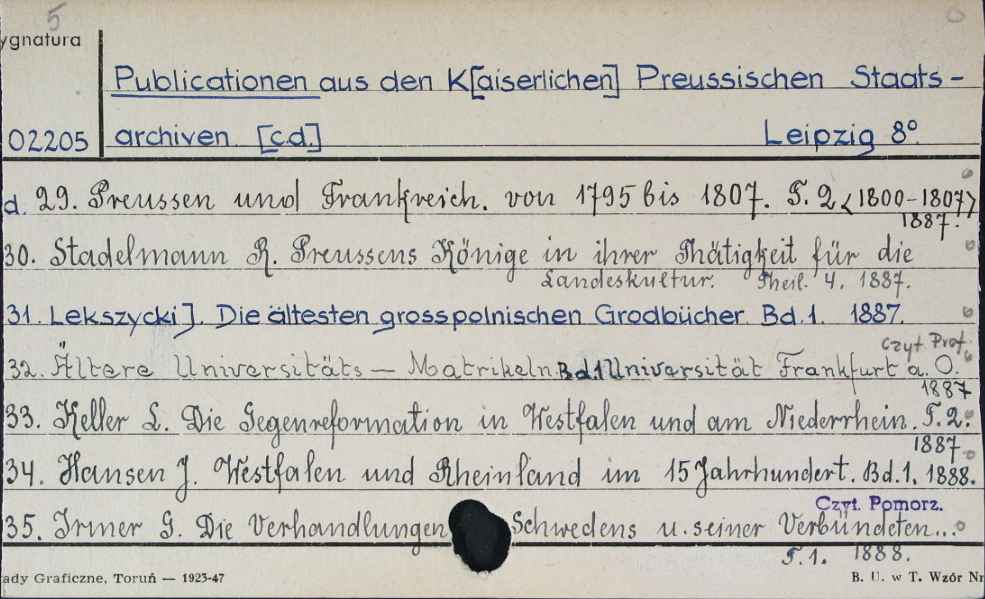 5
ygnatura
Publicationen aus den K[aiserlichen] Preussischen Staats-
02205 archiven [c.d.] Leipzig 8°
d. 29. Preussen und Frankreich. von 1795 bis 1807. T. 2 <1800-1807>
1887.
30. Stadelmann R. Preussens Könige in ihrer Thätigkeit für die
Landeskultur. Theil. 4. 1887.
31. Lekszycki J. Die ältesten grosspolnischen Grodbücher. Bd. 1. 1887.
Czyt Prof.
32. Ältere Universitäts – Matrikeln. Bd. 1 Universität Frankfurt a. O.
1887
33. Keller L. Die Gegenreformation in Westfalen und am Niederrhein. T. 2.
1887.
34. Hansen J. Westfalen und Rheinland im 15 Jahrhundert. Bd. 1. 1888.
Czyt. Pomorz.
35. Irmer G. Die Verhandlungen Schwedens u. seiner Verbündeten...
T. 1. 1888.
ady Graficzne, Toruń — 1923-47 B. U. w T. Wzór Nr